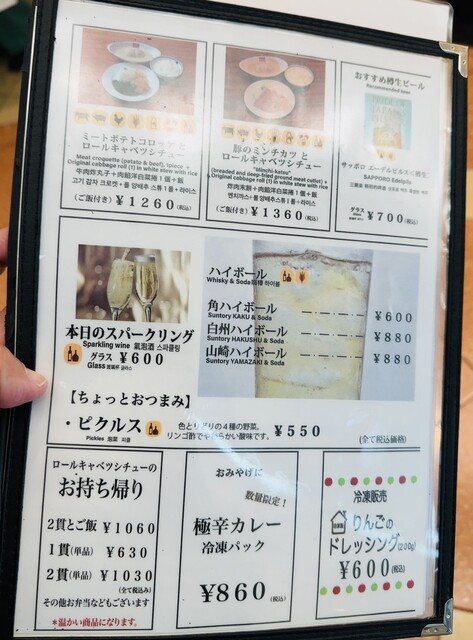 ミートポテトコロッケ と
ロールキャベツシチュー
Meat croquette (potato & beef), 1piece +
Original cabbage roll (1) in white stew with rice
牛肉炸丸子＋肉餡洋白菜捲１個＋飯
고기 감자 크로켓＋롤 양배추 스튜１롤＋라이스
（ご飯付き）￥１２６０（税込）
豚のミンチカツ と
ロールキャベツシチュー
"Minchi-katsu"
(breaded and deep-fried ground meat cutlet) +
Original cabbage roll (1) in white stew with rice
炸肉末餅＋肉餡洋白菜捲１個＋飯
멘치까스＋롤 양배추 스튜１롤＋라이스
（ご飯付き）￥１３６０（税込）
おすすめ樽生ビール
Recommended beer
サッポロ エーデルピルス＜樽生＞
SAPPORO Edelpils
グラス
Glass
￥７００（税込）
本日のスパークリング
Sparkling wine 氣泡酒 스파클링
グラス ￥６００
Glass 玻璃杯 글라스
ハイボール
Whisky & Soda 嗨棒 하이볼
角ハイボール ￥６００
Suntory KAKU & Soda
白州ハイボール ￥８８０
Suntory HAKUSHU & Soda
山崎ハイボール ￥８８０
Suntory YAMAZAKI & Soda
【ちょっとおつまみ】
・ピクルス
Pickles 泡菜 피클
色とりどりの４種の野菜。
リンゴ酢でやわらかい酸味です。
￥５５０
（全て税込価格）
ロールキャベツシチューの
お持ち帰り
２貫とご飯 ￥１０６０
１貫（単品） ￥６３０
２貫（単品） ￥１０３０
（全て税込み）
その他お弁当などもございます
＊温かい商品になります。
おみやげに
数量限定！
極辛カレー
冷凍パック
￥８６０（税込）
冷凍販売
りんごの
ドレッシング（200g）
￥６００（税込）